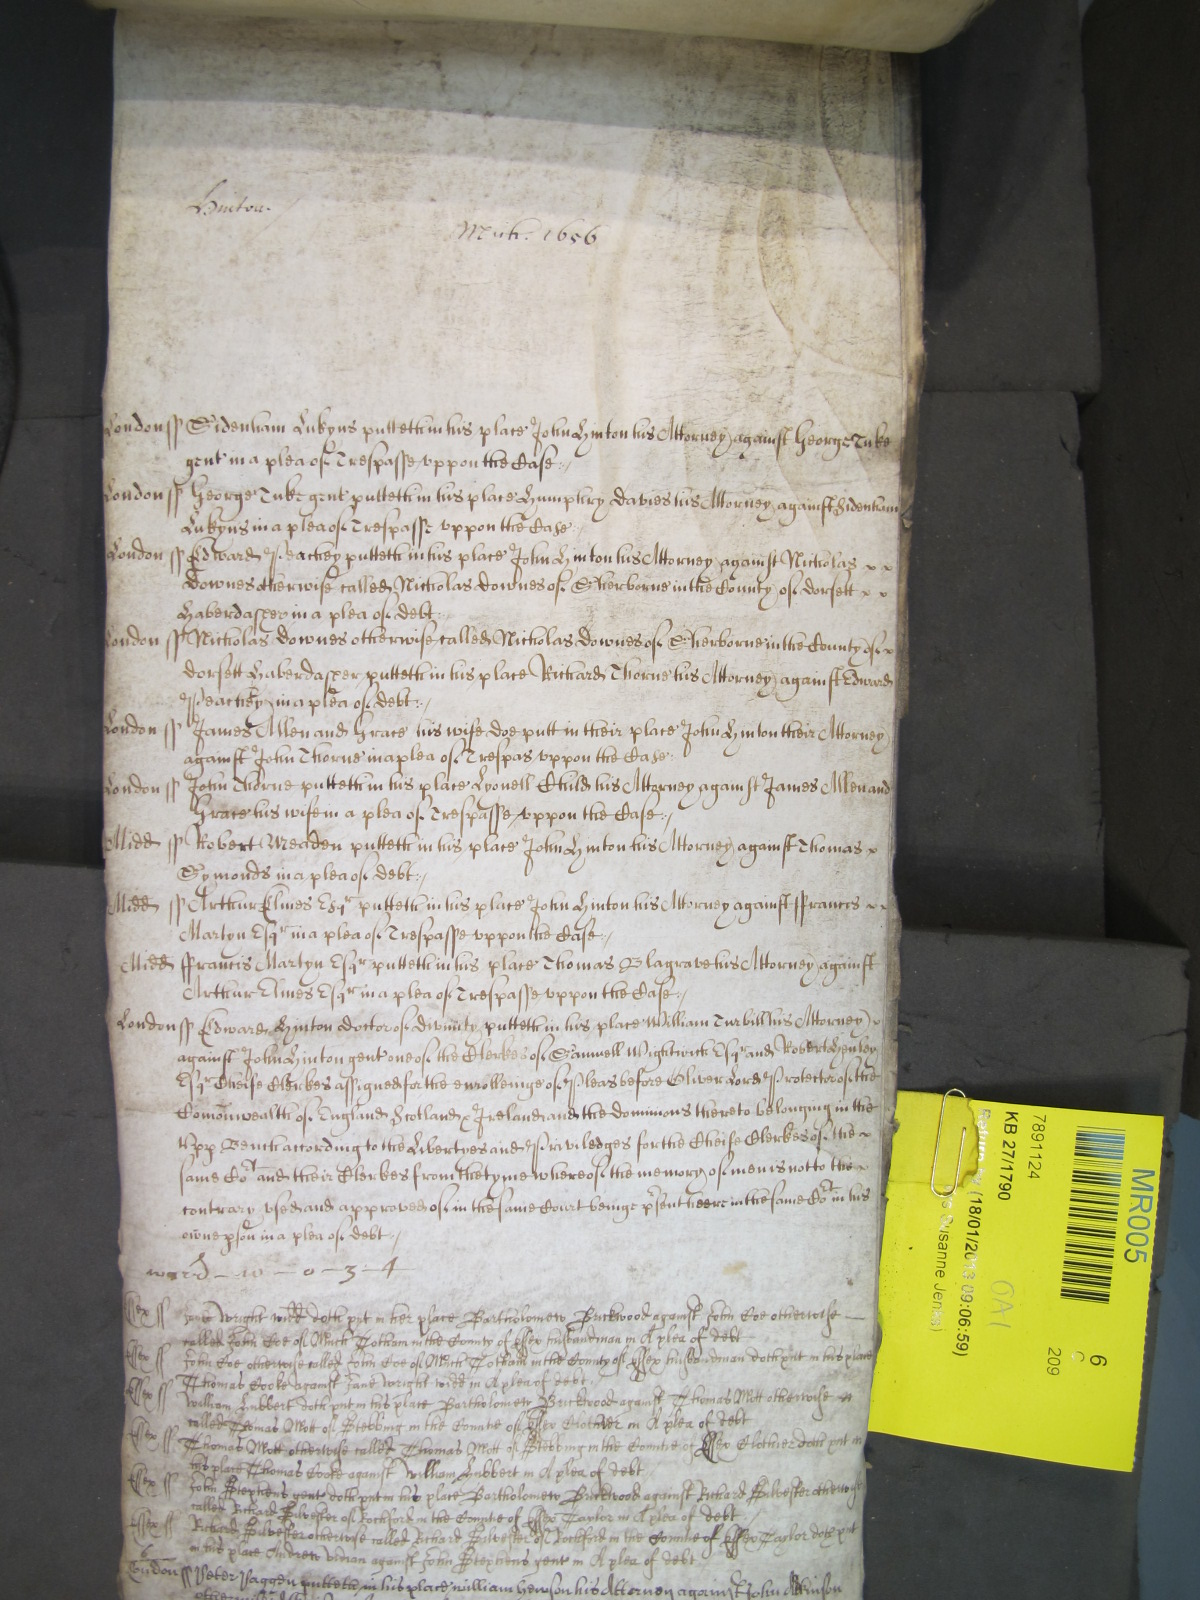 Hinton
Mich: 1656
London ss Sidenham Lukyns putteth in his place John Hinton his Attorney against George Tuke
gent in a plea of Trespasse uppon the Case
London ss George Tuke gent putteth in his place Humphry Davies his Attorney against Sidenham
Lukyns in a plea of Trespasse uppon the Case
London ss Edward Peachey putteth in his place John Hinton his Attorney against Nicholas x x
Downes otherwise called Nicholas Downes of Sherborne in the County of Dorsett x x
Haberdasher in a plea of debt
London ss Nicholas Downes otherwise called Nicholas Downes of Sherborne in the County of x
Dorsett Haberdasher putteth in his place Richard Thorne his Attorney against Edward
Peachey in a plea of debt
London ss James Allen and Grace his wife doe putt in their place John Hinton their Attorney
against John Thorne in a plea of Trespas uppon the Case
London ss John Thorne putteth in his place Lyonell Child his Attorney against James Allen and
Grace his wife in a plea of Trespasse uppon the Case
Midd ss Robert Meaden putteth in his place John Hinton his Attorney against Thomas x
Symonds in a plea of debt
Midd ss Arthur Elmes Esqr putteth in his place John Hinton his Attorney against ffrancis x x
Martyn Esqr in a plea of Trespasse uppon the Case
Midd ffrancis Martyn Esqr putteth in his place Thomas Blagrave his Attorney against
Arthur Elmes Esqr in a plea of Trespasse uppon the Case
London ss Edward Hinton doctor of divinity putteth in his place William Turbill his Attorney x
against John Hinton gent one of the Clerkes of Samuell Wightwick Esqr and Robert Henley
Esqr Cheife Clerkes assigned for the enrollinge of Pleas before Oliver Lord Protector of the
Comonwealth of England Scotland & Ireland and the dominions thereto belonging in the
upp Bench according to the Libertyes and Priviledges for the Cheife Clerkes of the x
same Cot and their Clerkes from the tyme whereof the memory of men is not to the x
contrary used and approved of in the same Court beinge psent heere in the same Cot in his
owne pson in a plea of debt
10 - 0 - 3 - 4
Essex ss Jane Wright widd doth put in her place Bartholomew Brickwood against John Coe otherwise
called John Coe of Much Totham in the County of Essex husbandman in A plea of debt
Essex ss John Coe otherwise called John Coe of Much Totham in the County of Essex husbandman doth put in his place
Thomas Cooke against Jane Wright widd in A plea of debt
Essex ss William Hubbert doth put in his place Bartholomew Brickwood against Thomas Mott otherwise
called Thomas Mott of Stebbing in the Countie of Essex Clothier in A plea of debt
Essex ss Thomas Mott otherwise called Thomas Mott of Stebbing in the Countie of Essex Clothier doth put in
his place Thomas Cooke against William Hubbert in A plea of debt
Essex ss John Stephens gent doth put in his place Bartholomew Brickwood against Richard Silvester otherwise
called Richard Silvester of Rochford in the Countie of Essex Taylor in A plea of debt
Essex ss Richard Silvester otherwise called Richard Silvester of Rochford in the Countie of Essex Taylor doth put
in his place Andrew against John Stephens gent in A plea of debt
London ss Peter putteth in his place William Hewson his Attorney against John Atkinson
MR005
6
209
7891124
KB 27/1790
(18/01/2013 09:06:59)
Susanne Jenks)